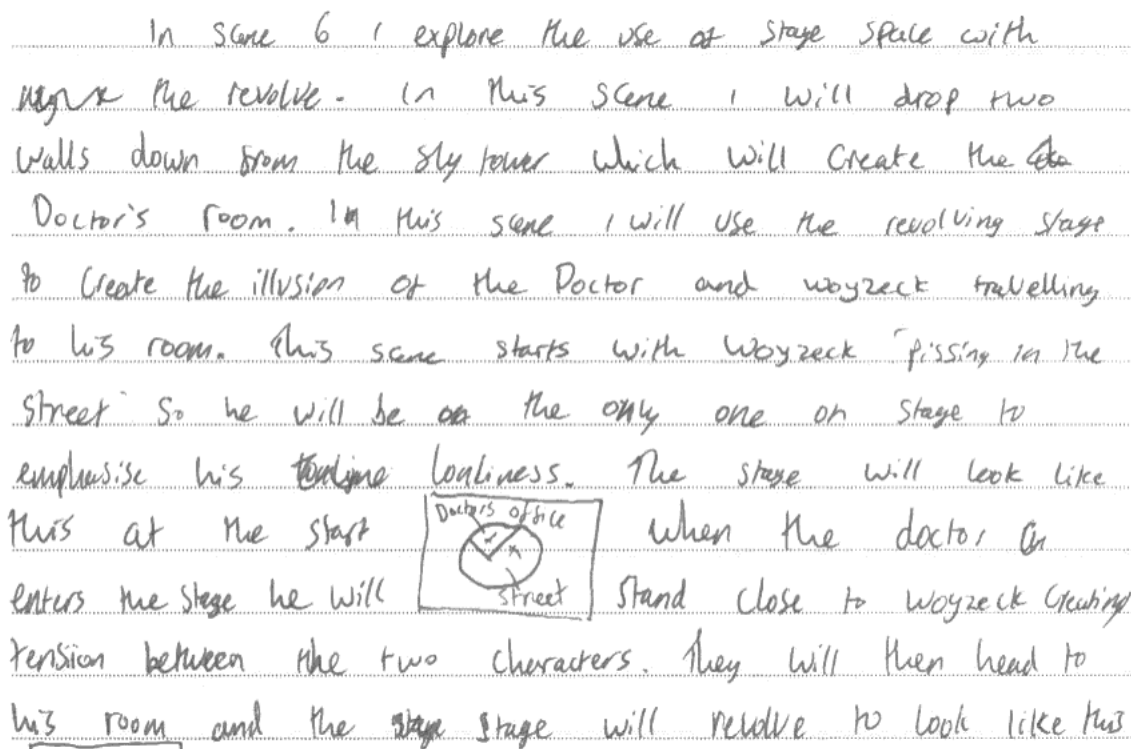 In scene 6 I explore the use of stage space with
the revolve. In this scene I will drop two
walls down from the fly tower which will create the
Doctor's room. In this scene I will use the revolving stage
to create the illusion of the Doctor and Woyzeck travelling
to his room. This scene starts with Woyzeck "pissing in the
street" So he will be the only one on stage to
emphasise his lonliness. The stage will look like
this at the start Doctors office when the doctor
enters the stage he will street stand close to Woyzeck creating
tension between the two characters. They will then head to
his room and the stage will revolve to look like this